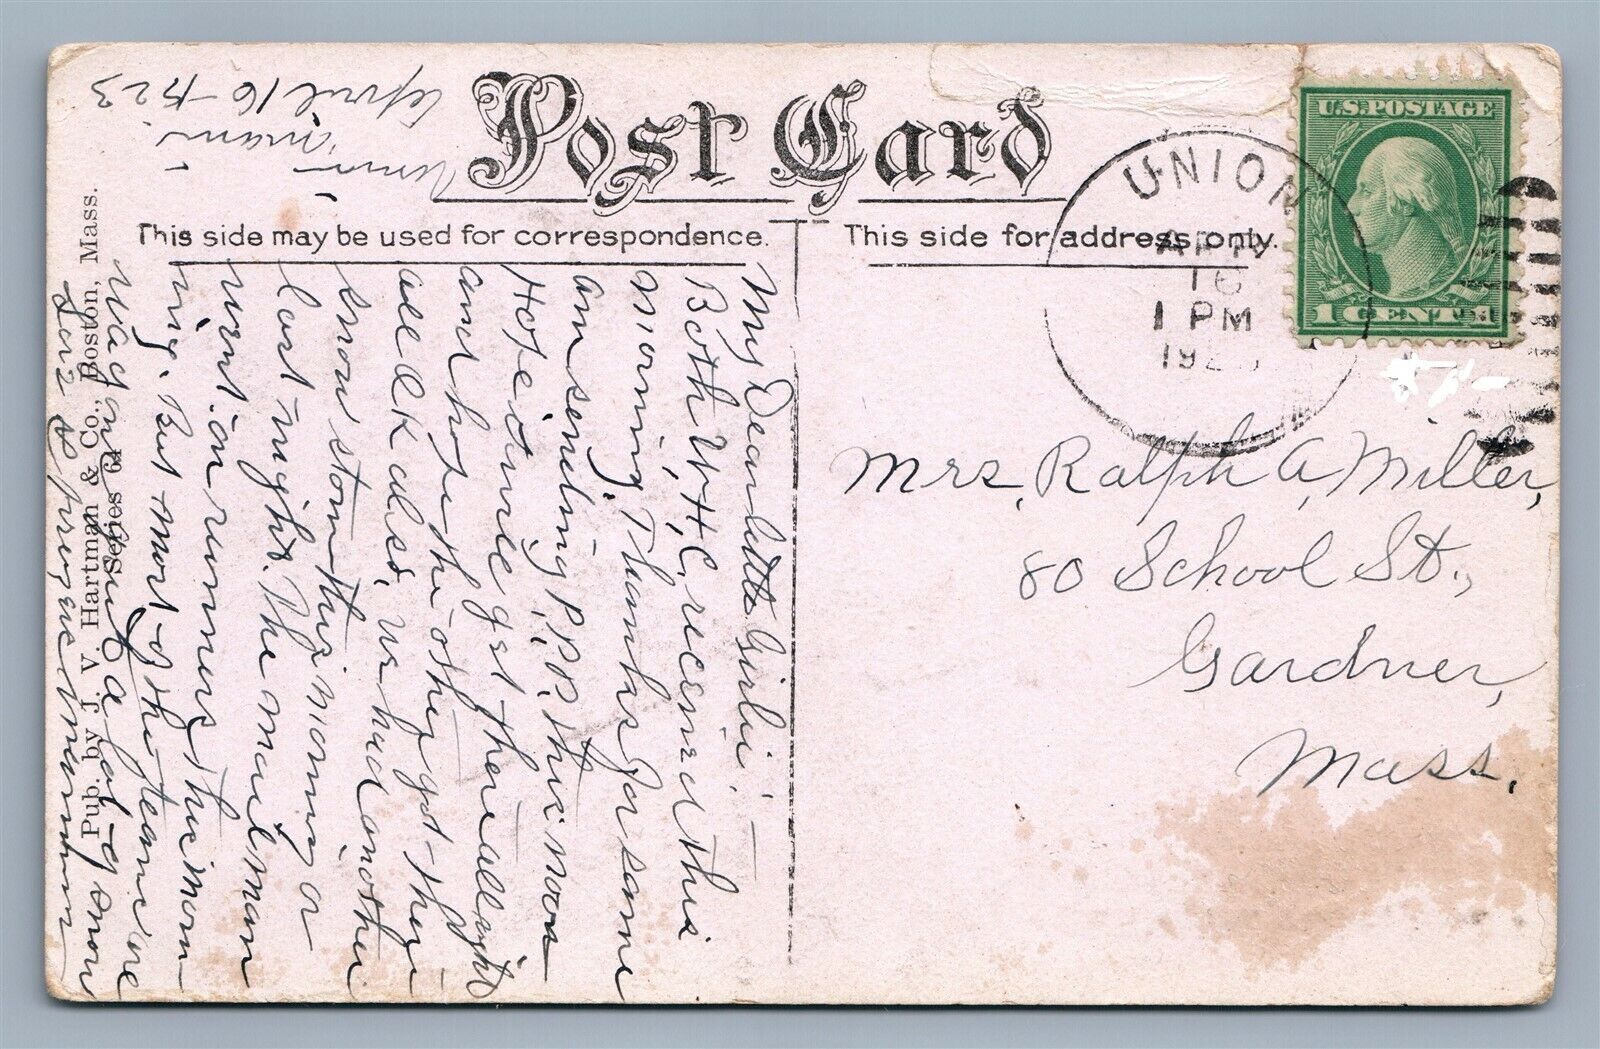 Post Card
This side may be used for correspondence.
This side for address only.
U.S. POSTAGE
1 CENT 1
UNION
APR
16
1 PM
192
Mrs. Ralph A. Miller,
80 School St.,
Gardner,
Mass.
Pub. by J. V. Hartman & Co., Boston, Mass.
Series 64
Union
April 16 - 1923
My Dear little Girlie:—
Both W. H. C. received this
morning. Thanks for same
am sending P.P. this noon
Hope it will get there all right
and hope the other got there
all O.K. also. We had another
snow storm this morning or
last night. The mail man
went on runners this morn-
ing. But most of the teams are
wagons but a lot of snow